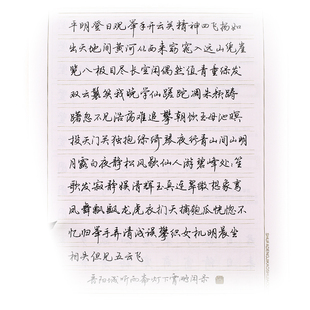 平明登日观举手开云关精神四飞扬如
出天地间黄河从西来窈窕入远山凭崖
览八极目尽长空闲偶然值青童绿发
双云鬟笑我晚学仙蹉跎凋朱颜踌
躇忽不见浩荡难追攀朝饮王母池暝
投天门关独抱绿绮琴夜行青山间山明
月露白夜静松风歇仙人游碧峰处处笙
歌发寂静娱清辉玉真连翠微想象鸾
凤舞飘飖龙虎衣扪天摘匏瓜恍惚不
忆归举手弄清浅误攀织女机明晨坐
相失但见五云飞